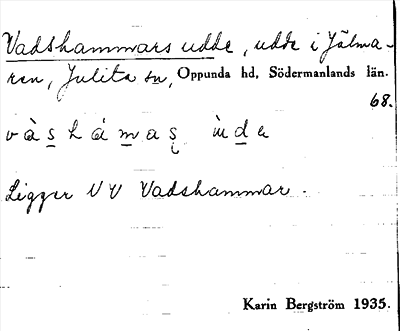 Vadshammars udde, udde i Jälma-
ren, Julita sn, Oppunda hd, Södermanlands län.
68.
v à s h á m a s ù d e
Ligger NV Vadshammar.
Karin Bergström 1935.